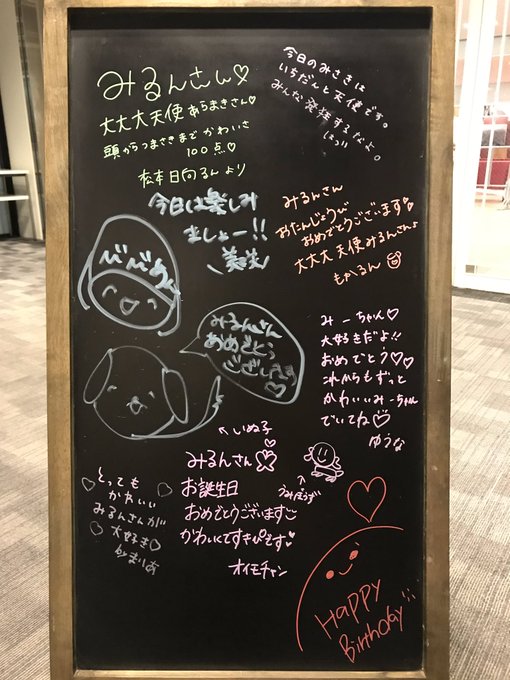 みるんさん♡
大大大天使あらまきさん♡
頭からつまさきまでかわいさ
100点♡
松本日向るんより
今日のみさきは
いちだんと天使です。
みんな発狂するなよ。
今日は楽しみ
ましょー!!
みるんさん
おたんじょうび
おめでとうございます
大大大天使みるんさんよ
もかるん
みるんさん
おめでとう
ございます
♡
←いぬ子
みーちゃん♡
大好きだよ!!
おめでとう♡♡
これからもずっと
かわいいみーちゃん
でいてね
ゆうな
みるんさん
お誕生日
おめでとうございます
かわいくてすきぴです
オイモチャン
うみぼうず
とっても
かわいい
みるんさんが
大好き♡
byまりあ
Happy
Birthday!!